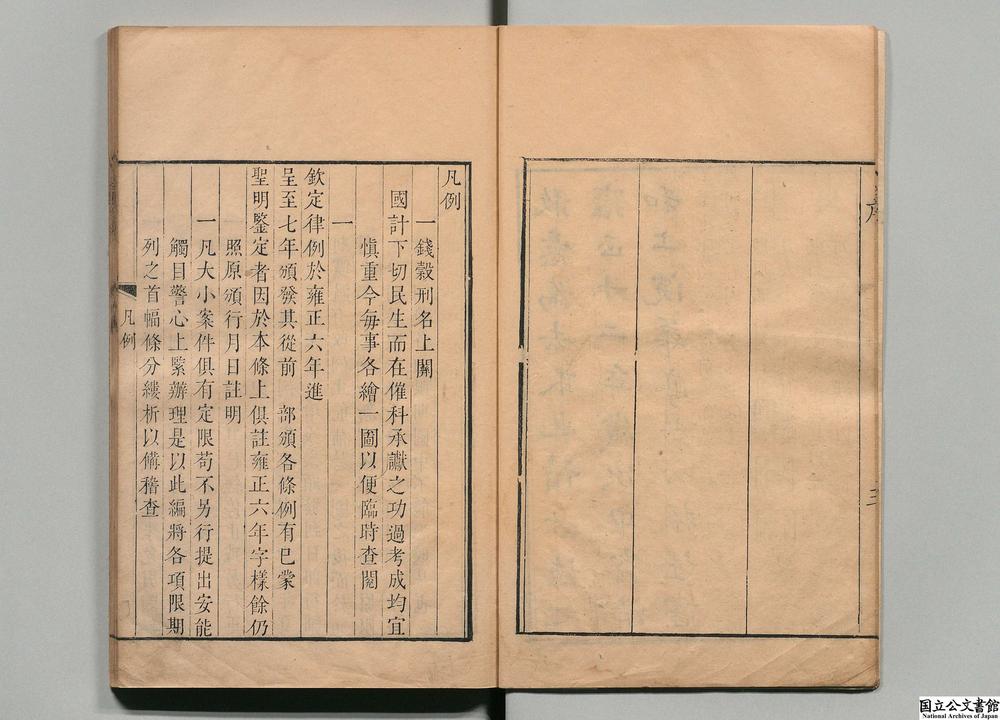 序
三
凡例
一錢穀刑名上關
國計下切民生而在催科承讞之功過考成均宜
慎重今每事各繪一圖以便臨時查閱
一
欽定律例於雍正六年進
呈至七年頒發其從前 部頒各條例有已蒙
聖明鑒定者因於本條上俱註雍正六年字樣餘仍
照原頒行月日註明
一凡大小案件俱有定限苟不另行提出安能
觸目警心上緊辦理是以此編將各項限期
列之首幅條分縷析以備稽查
凡例
国立公文書館
National Archives of Japan